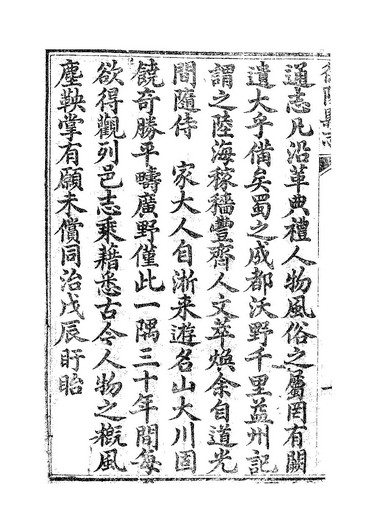 通志凡沿革典禮人物風俗之屬罔有闕
遺大乎備矣蜀之成都沃野千里益州記
謂之陸海稼穡豐齊人文萃煥余自道光
間隨侍 家大人自淅来遊名山大川固
饒奇勝平疇廣野僅此一隅三十年間每
欲得觀列邑志乘藉悉古今人物之概風
塵鞅掌有願未償同治戊辰盱眙